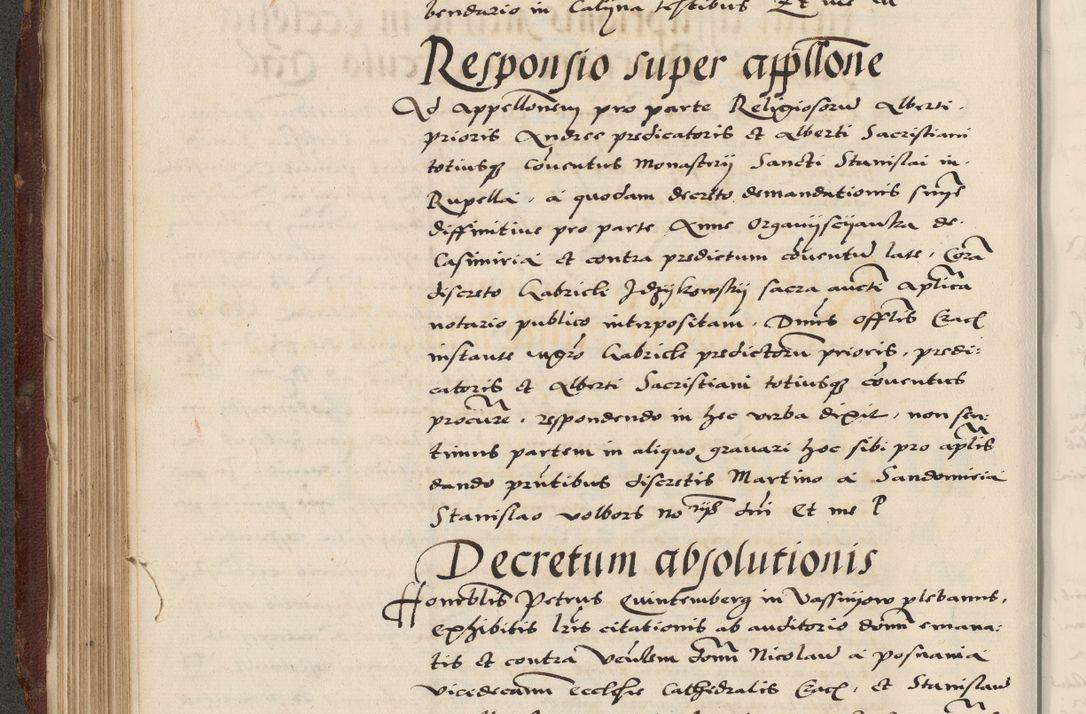 bendario in Calyna testibus Et me
Responsio super appellone
Ad appellonem pro parte Religiosorum Alberti
prioris Andree predicatoris et Alberti Sacristiani
totiusque Coventus Monasterij Sancti Stanislai in
Rupella, a quodam decreto demandationis sinne
diffinitive pro parte Anne Organijscijanka de
Casimiria et contra predictum coventum late, Cora
discreto Gabrieli Jdzijkowskij sacra aucti aplica
notario publico interpositam, Dnus offlis Crac
instante ngro Gabriele predictorum prioris, predi:
catoris et Alberti Sacristiani totiusque coventus
procure, respondendo in hec verba dixit, non sen:
timus partem in aliquo gravari hoc sibi pro aplis
dando prntibus discretis Martino a Sandomiria
Stanislao volbors norijs dni Et me P
Decretum absolutionis
Honorblis Petrus Quintemberg in Vassinijow plebanus,
exhibitis lris citationis ab auditorio domi emana:
tis et contra Venlem domi Nicolaum a posnania
vicedecanum ecclesie Cathedralis Crac, et Stanislaum